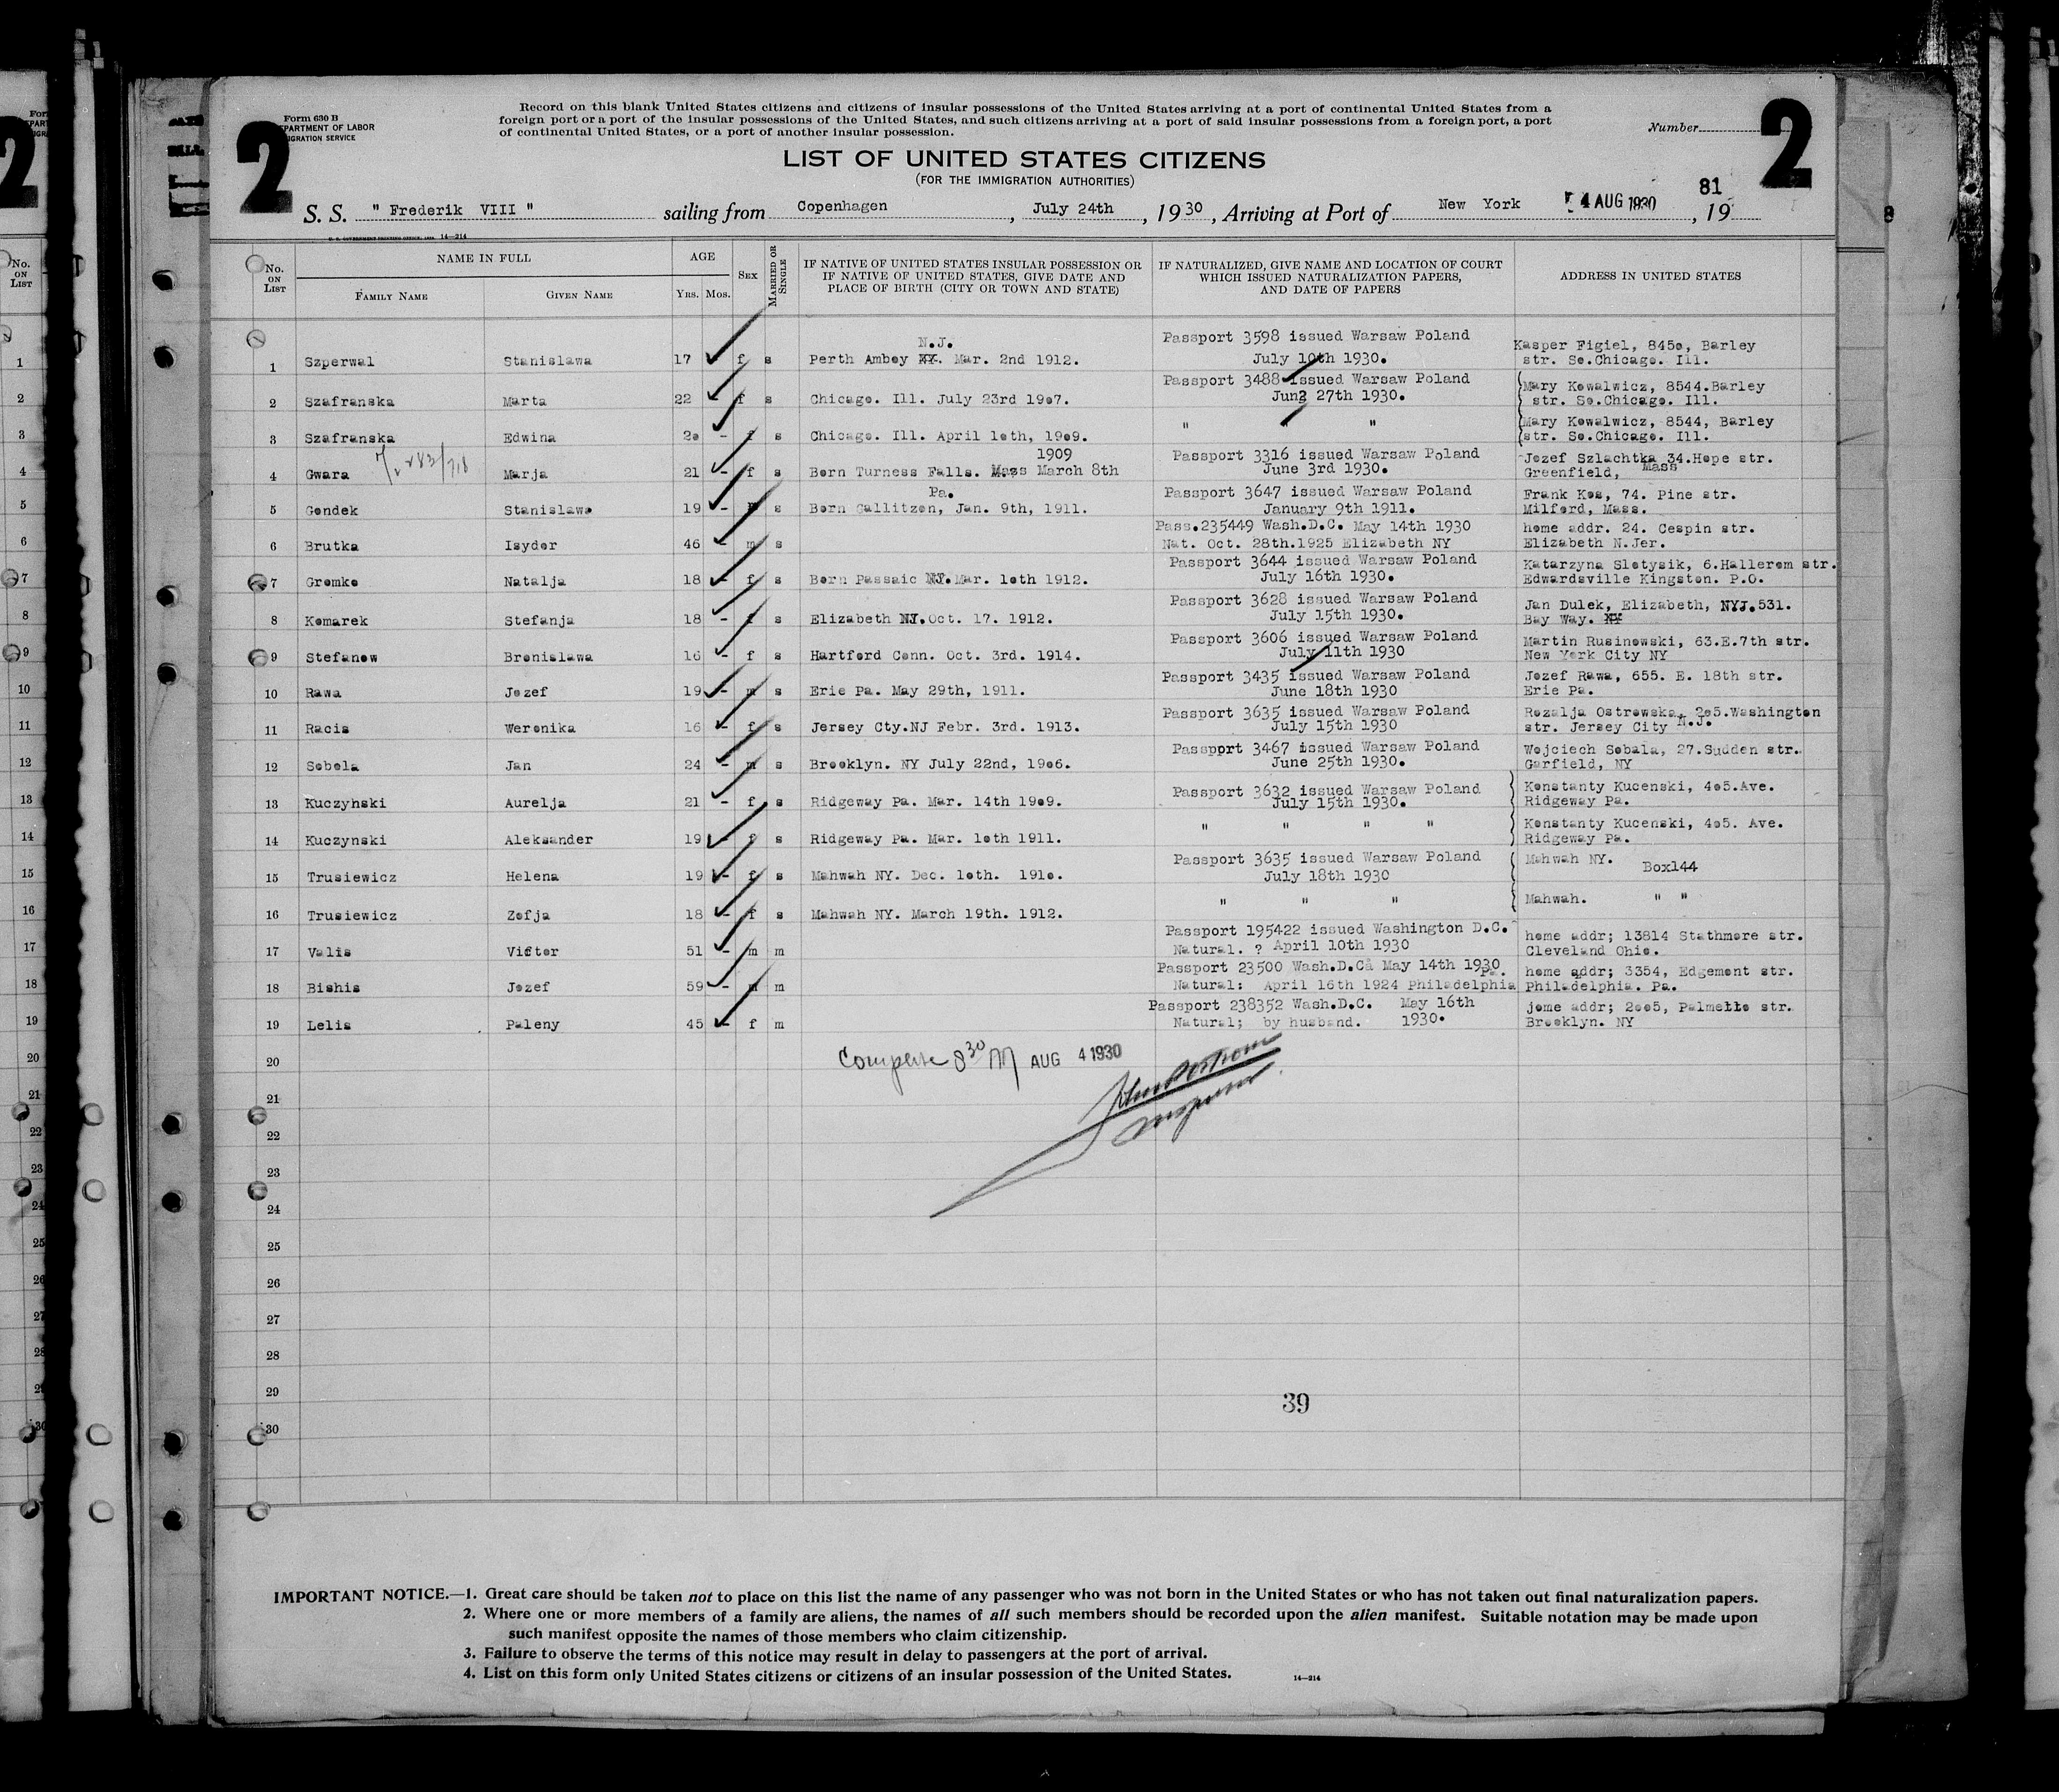 Form 630 B
DEPARTMENT OF LABOR
IMMIGRATION SERVICE
2
Record on this blank United States citizens and citizens of insular possessions of the United States arriving at a port of continental United States from a
foreign port or a port of the insular possessions of the United States, and such citizens arriving at a port of said insular possessions from a foreign port, a port
of continental United States, or a port of another insular possession.
Number
2
LIST OF UNITED STATES CITIZENS
(FOR THE IMMIGRATION AUTHORITIES)
81
S. S. " Frederik VIII " sailing from Copenhagen , July 24th , 1930 , Arriving at Port of New York 4 AUG 1930 , 19
14—214
No. on List
NAME IN FULL
Family Name
Given Name
AGE
Yrs. Mos.
Sex
Married or Single
IF NATIVE OF UNITED STATES INSULAR POSSESSION OR
IF NATIVE OF UNITED STATES, GIVE DATE AND
PLACE OF BIRTH (CITY OR TOWN AND STATE)
IF NATURALIZED, GIVE NAME AND LOCATION OF COURT
WHICH ISSUED NATURALIZATION PAPERS,
AND DATE OF PAPERS
ADDRESS IN UNITED STATES
1 Szperwal Stanislawa 17 f s Perth Amboy N.J. Mar. 2nd 1912. Passport 3598 issued Warsaw Poland July 10th 1930. Kasper Figiel, 845o, Barley str. So.Chicago. Ill.
2 Szafranska Marta 22 f s Chicago. Ill. July 23rd 19o7. Passport 3488 issued Warsaw Poland June 27th 1930. Mary Kowalwicz, 8544.Barley str. So.Chicago. Ill.
3 Szafranska Edwina 2o - f s Chicago. Ill. April 1oth, 19o9. " " " Mary Kowalwicz, 8544, Barley str. So.Chicago. Ill.
4 Gwara Marja 21 - f s Born Turness Falls. Mass March 8th 1909 Passport 3316 issued Warsaw Poland June 3rd 1930. Jozef Szlachtka 34.Hope str. Greenfield, Mass
5 Gondek Stanislaw 19 - m s Born Gallitzen, Pa. Jan. 9th, 1911. Passport 3647 issued Warsaw Poland January 9th 1911. Frank Kos, 74. Pine str. Milford, Mass.
6 Brutka Isydor 46 - m s Pass.235449 Wash.D.C. May 14th 1930 Nat. Oct. 28th.1925 Elizabeth NY home addr. 24. Cespin str. Elizabeth N.Jer.
7 Gromko Natalja 18 - f s Born Passaic NJ.Mar. 1oth 1912. Passport 3644 issued Warsaw Poland July 16th 1930. Katarzyna Slotysik, 6.Hallerem str. Edwardsville Kingston. P.O.
8 Komarek Stefanja 18 - f s Elizabeth NJ.Oct. 17. 1912. Passport 3628 issued Warsaw Poland July 15th 1930. Jan Dulek, Elizabeth, NYJ.531. Bay Way.
9 Stefanow Bronislawa 16 - f s Hartford Conn. Oct. 3rd. 1914. Passport 3606 issued Warsaw Poland July 11th 1930 Martin Rusinowski, 63.E.7th str. New York City NY
10 Rawa Jozef 19 - m s Erie Pa. May 29th, 1911. Passport 3435 issued Warsaw Poland June 18th 1930 Jozef Rawa, 655. E. 18th str. Erie Pa.
11 Racis Weronika 16 - f s Jersey Cty.NJ Febr. 3rd. 1913. Passport 3635 issued Warsaw Poland July 15th 1930 Rozalja Ostrowska, 2o5.Washington str. Jersey City N.J.
12 Sobola Jan 24 - m s Brooklyn. NY July 22nd, 19o6. Passport 3467 issued Warsaw Poland June 25th 1930. Wojciech Sobala, 27.Sudden str. Garfield, NY
13 Kuczyhski Aurelja 21 - f s Ridgeway Pa. Mar. 14th 19o9. Passport 3632 issued Warsaw Poland July 15th 1930. Konstanty Kucenski, 4o5.Ave. Ridgeway Pa.
14 Kuczynski Aleksander 19 - f s Ridgeway Pa. Mar. 1oth 1911. " " " " Konstanty Kucenski, 4o5. Ave. Ridgeway Pa.
15 Trusiewicz Helena 19 - f s Mahwah NY. Dec. 1oth. 191o. Passport 3635 issued Warsaw Poland July 18th 1930 Mahwah NY. Box144
16 Trusiewicz Zofja 18 - f s Mahwah NY. March 19th. 1912. " " " Mahwah. " "
17 Valis Viftor 51 - m m Passport 195422 issued Washington D.C. Natural. ? April 10th 1930 home addr; 13814 Stathmore str. Cleveland Ohio.
18 Bishis Jozef 59 - m m Passport 23500 Wash.D.C. May 14th 1930 Natural: April 16th 1924 Philadelphia Pa. home addr; 3354, Edgement str. Philadelphia. Pa.
19 Lelis Paleny 45 - f m Passport 238352 Wash.D.C. May 16th 1930. Natural; by husband. jome addr; 2oo5, Palmetto str. Brooklyn. NY
20
Complete 8 30 AUG 4 1930
21
22
Inspector
23
24
25
26
27
28
29
39
30
IMPORTANT NOTICE.—1. Great care should be taken not to place on this list the name of any passenger who was not born in the United States or who has not taken out final naturalization papers.
2. Where one or more members of a family are aliens, the names of all such members should be recorded upon the alien manifest. Suitable notation may be made upon
such manifest opposite the names of those members who claim citizenship.
3. Failure to observe the terms of this notice may result in delay to passengers at the port of arrival.
4. List on this form only United States citizens or citizens of an insular possession of the United States.
14—214